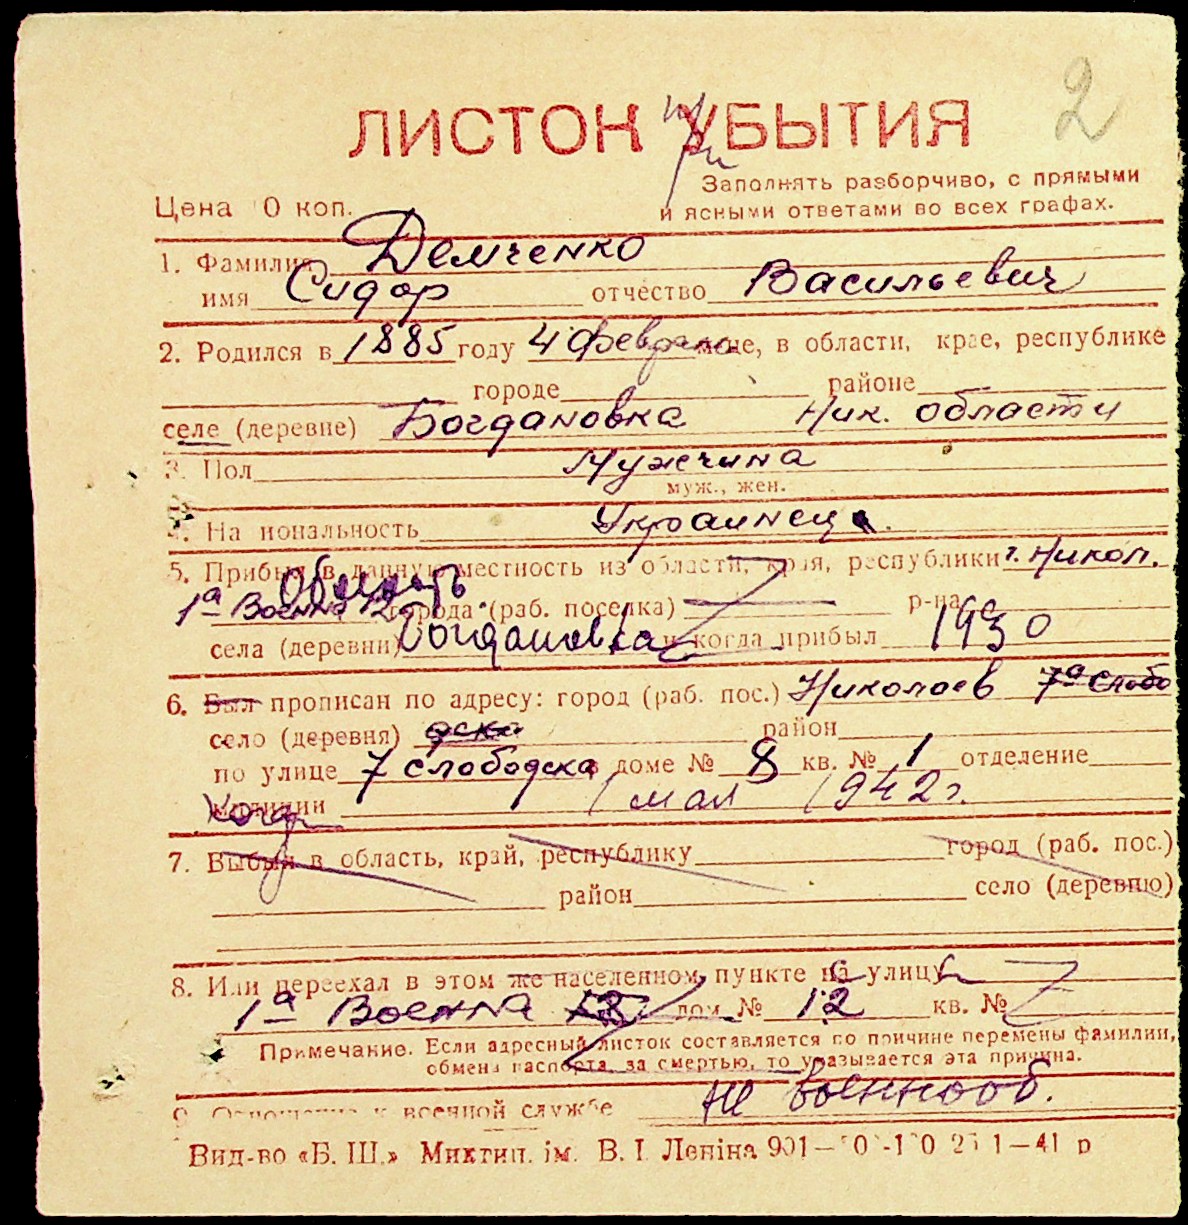 2
ЛИСТОК УБЫТИЯ
при
Заполнять разборчиво, с прямыми
и ясными ответами во всех графах.
Цена 0 коп.
1. Фамилия Демченко
имя Сидор отчество Васильевич
2. Родился в 1885 году 4 февраля месяце, в области, крае, республике
городе районе
селе (деревне) Богдановка Ник. области
3. Пол Мужчина
муж., жен.
4. Национальность Украинец
5. Прибыл в данную местность из области, края, республики г. Никол.
1а Военна 12 города (раб. поселка) р-на
села (деревни) Богдановка и когда прибыл 1930
6. Был прописан по адресу: город (раб. пос.) Николаев 7а Слобо
село (деревня) дска район
по улице 7 слободска доме № 8 кв. № 1 отделение
милиции 1 мая 1942 г.
Когда
7. Выбыл в область, край, республику город (раб. пос.)
район село (деревню)
8. Или переехал в этом же населенном пункте на улицу
1а Военна дом № 12 кв. №
Примечание. Если адресный листок составляется по причине перемены фамилии,
обмена паспорта, за смертью, то указывается эта причина.
9. Отношение к военной службе не военнооб.
Вид-во «Б. Ш.» Миктип. ім. В. І. Леніна